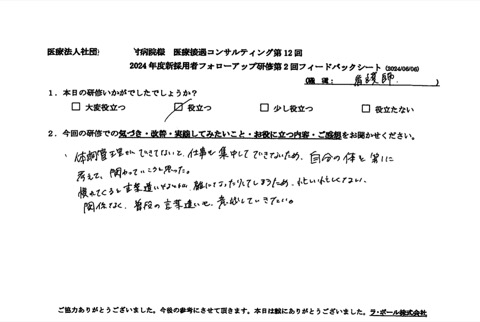 医療法人社団 附病院様 医療接遇コンサルティング第12回
2024年度新採用者フォローアップ研修第2回フィードバックシート (2024/06/06)
(職種: 看護師 )
1．本日の研修いかがでしたでしょうか？
□ 大変役立つ □ 役立つ □ 少し役立つ □ 役立たない
2．今回の研修での気づき・改善・実践してみたいこと・お役に立つ内容・ご感想をお聞かせください。
・体調管理ができてないと、仕事も集中してできないため、自分の体を第1に
考えて、関わっていこうと思った。
慣れてくると言葉遣いや 雑になったりしてしまうため、忙しい忙しくない
関係なく、普段の言葉遣いも、意識していきたい。
ご協力ありがとうございました。今後の参考にさせて頂きます。本日は誠にありがとうございました。ラ・ポール株式会社